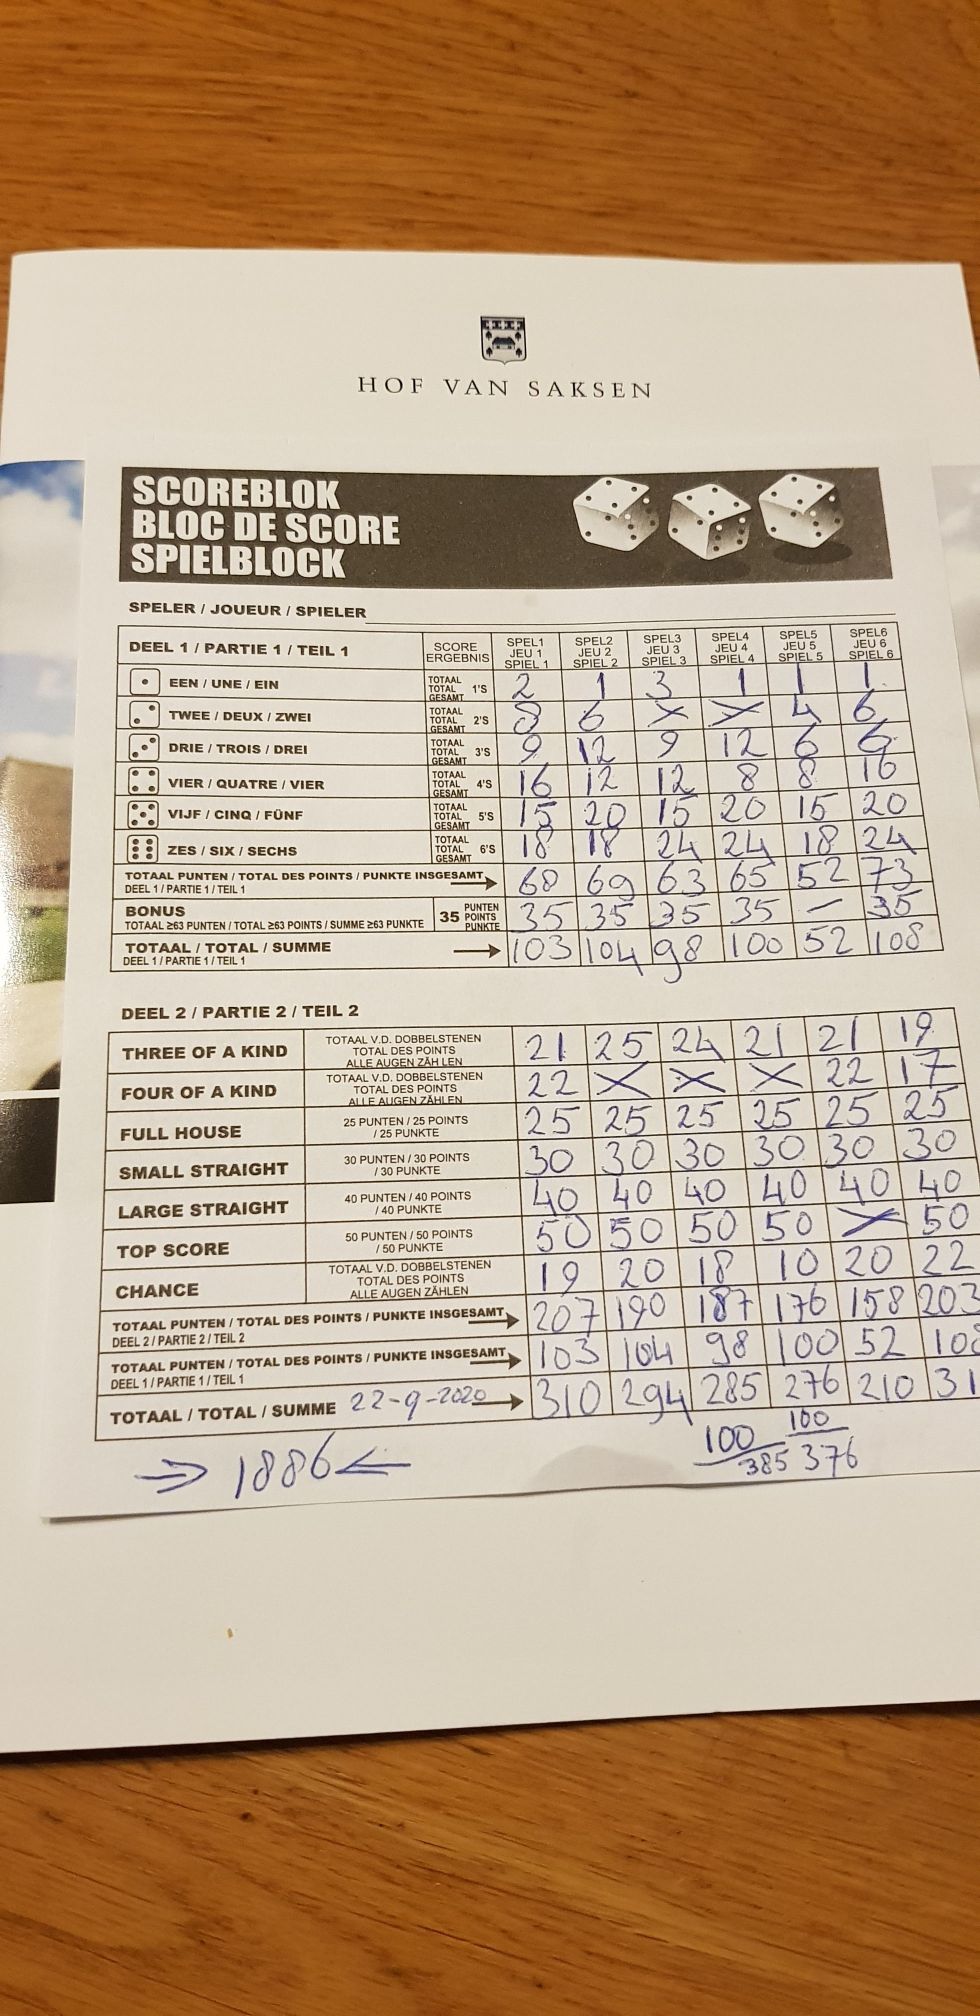 HOF VAN SAKSEN
SCOREBLOK
BLOC DE SCORE
SPIELBLOCK
SPELER / JOUEUR / SPIELER
DEEL 1 / PARTIE 1 / TEIL 1 SCORE ERGEBNIS SPEL1 JEU 1 SPIEL 1 SPEL2 JEU 2 SPIEL 2 SPEL3 JEU 3 SPIEL 3 SPEL4 JEU 4 SPIEL 4 SPEL5 JEU 5 SPIEL 5 SPEL6 JEU 6 SPIEL 6
EEN / UNE / EIN TOTAAL TOTAL GESAMT 1'S 2 1 3 1 1 1
TWEE / DEUX / ZWEI TOTAAL TOTAL GESAMT 2'S 8 6 X X 4 6
DRIE / TROIS / DREI TOTAAL TOTAL GESAMT 3'S 9 12 9 12 6 6
VIER / QUATRE / VIER TOTAAL TOTAL GESAMT 4'S 16 12 12 8 8 16
VIJF / CINQ / FÜNF TOTAAL TOTAL GESAMT 5'S 15 20 15 20 15 20
ZES / SIX / SECHS TOTAAL TOTAL GESAMT 6'S 18 18 24 24 18 24
TOTAAL PUNTEN / TOTAL DES POINTS / PUNKTE INSGESAMT DEEL 1 / PARTIE 1 / TEIL 1 68 69 63 65 52 73
BONUS TOTAAL ≥63 PUNTEN / TOTAL ≥63 POINTS / SUMME ≥63 PUNKTE 35 PUNTEN POINTS PUNKTE 35 35 35 35 — 35
TOTAAL / TOTAL / SUMME DEEL 1 / PARTIE 1 / TEIL 1 103 104 98 100 52 108
DEEL 2 / PARTIE 2 / TEIL 2
THREE OF A KIND TOTAAL V.D. DOBBELSTENEN TOTAL DES POINTS ALLE AUGEN ZÄHLEN 21 25 24 21 21 19
FOUR OF A KIND TOTAAL V.D. DOBBELSTENEN TOTAL DES POINTS ALLE AUGEN ZÄHLEN 22 X X X 22 17
FULL HOUSE 25 PUNTEN / 25 POINTS / 25 PUNKTE 25 25 25 25 25 25
SMALL STRAIGHT 30 PUNTEN / 30 POINTS / 30 PUNKTE 30 30 30 30 30 30
LARGE STRAIGHT 40 PUNTEN / 40 POINTS / 40 PUNKTE 40 40 40 40 40 40
TOP SCORE 50 PUNTEN / 50 POINTS / 50 PUNKTE 50 50 50 50 X 50
CHANCE TOTAAL V.D. DOBBELSTENEN TOTAL DES POINTS ALLE AUGEN ZÄHLEN 19 20 18 10 20 22
TOTAAL PUNTEN / TOTAL DES POINTS / PUNKTE INSGESAMT DEEL 2 / PARTIE 2 / TEIL 2 207 190 187 176 158 203
TOTAAL PUNTEN / TOTAL DES POINTS / PUNKTE INSGESAMT DEEL 1 / PARTIE 1 / TEIL 1 103 104 98 100 52 108
TOTAAL / TOTAL / SUMME 22-9-2020 310 294 285 276 210 31
100 100
⇒ 1886 ← 385 376